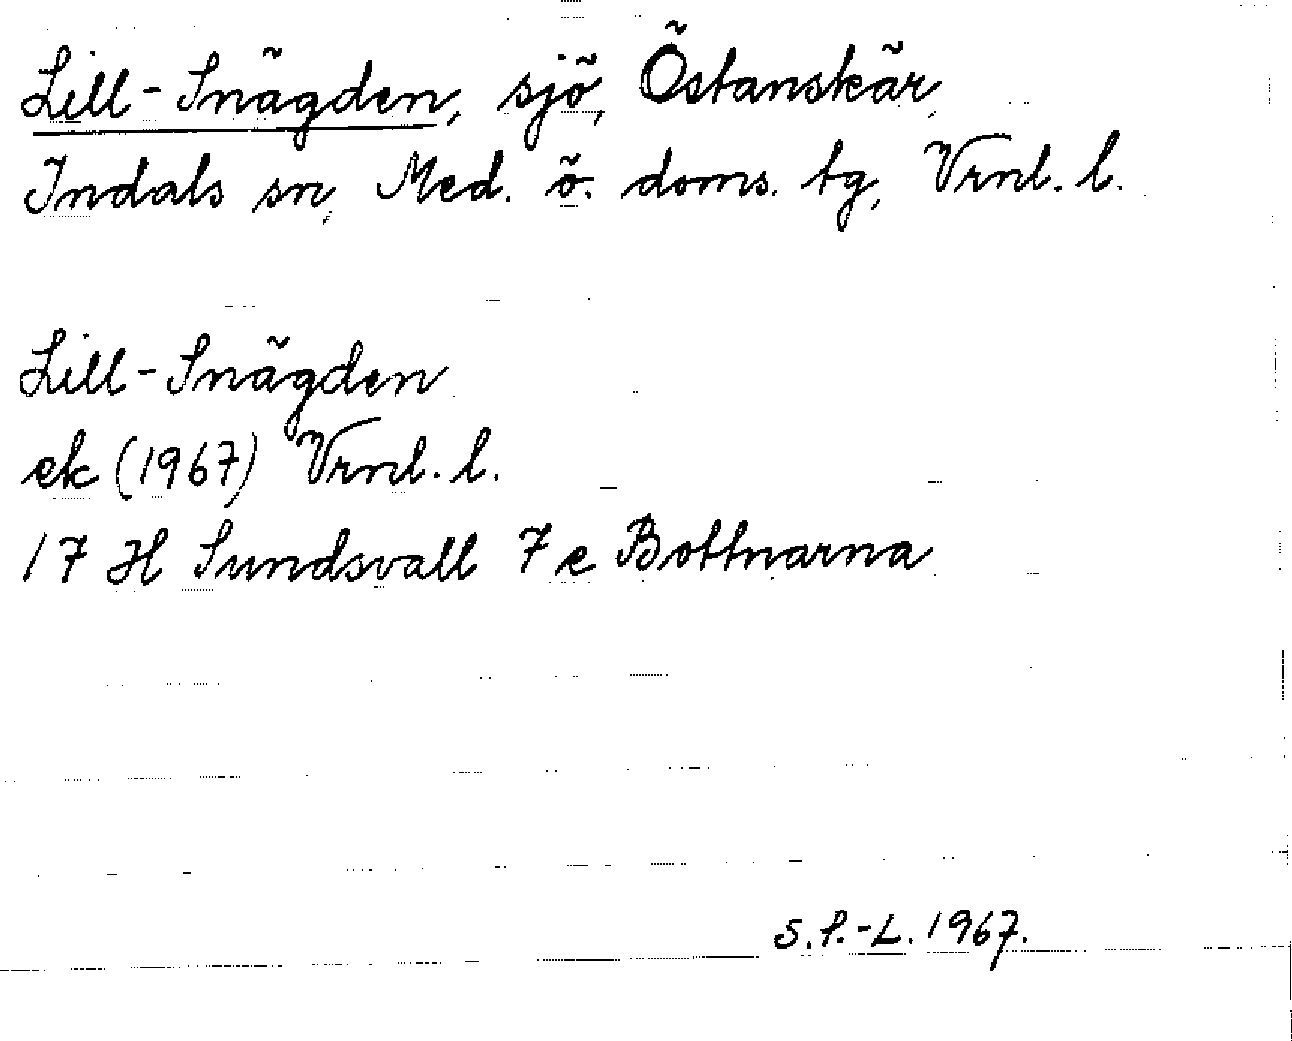 Lill-Snägden, sjö, Östanskär,
Indals sn, Med. ö. doms. tg, Vrnl. l.
Lill-Snägden
ek (1967) Vrnl. l.
17 H Sundsvall 7 e Bottnarna
S.P.-L. 1967.